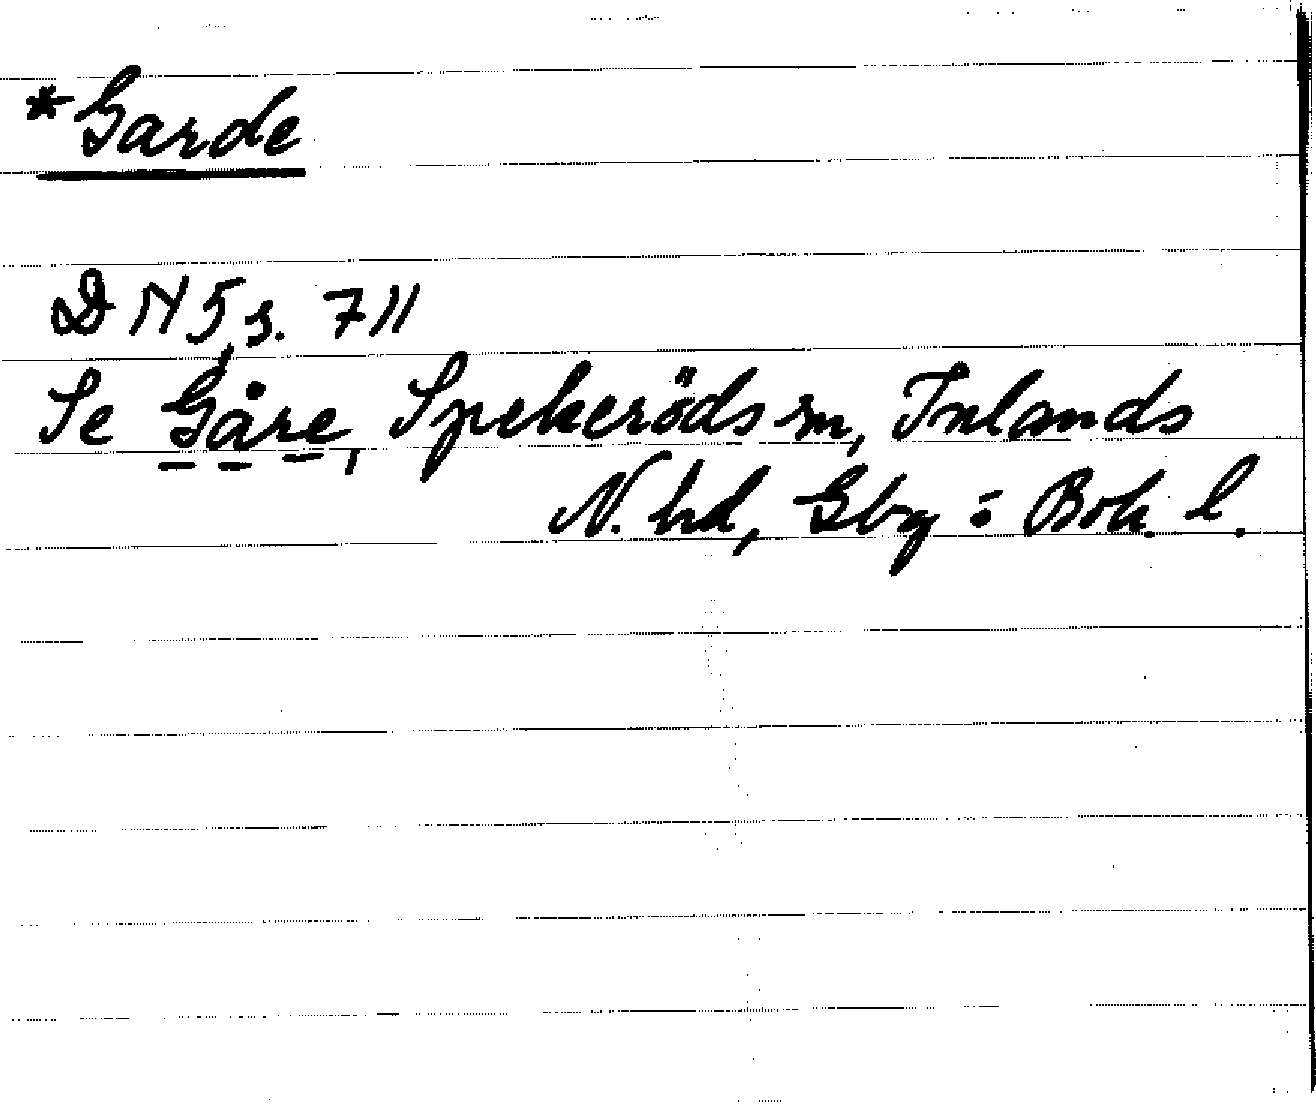 *Garde
DN 5, s. 711
Se Gåre, Spekeröds sn, Inlands
N. hd, Gbg o. Boh. l.